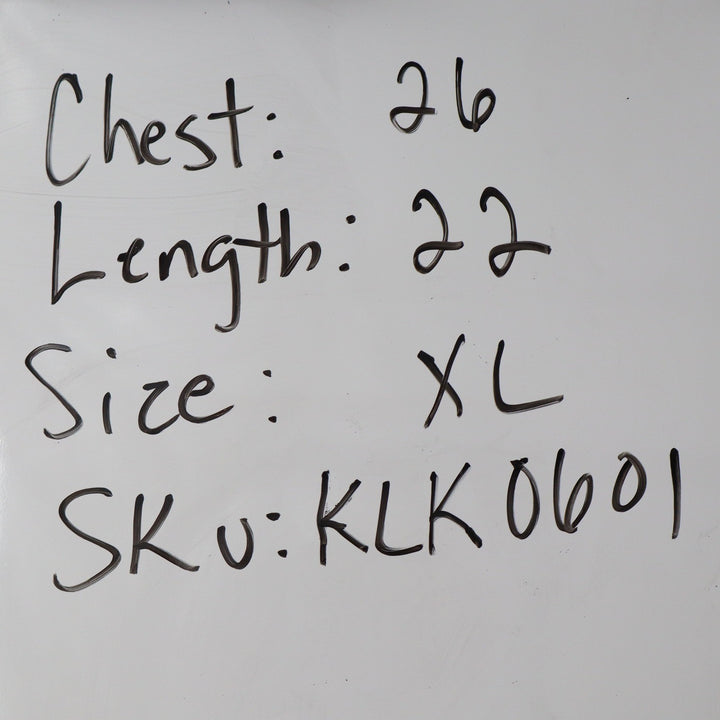 Chest: 26
Length: 22
Size: XL
SKU: KLK0601